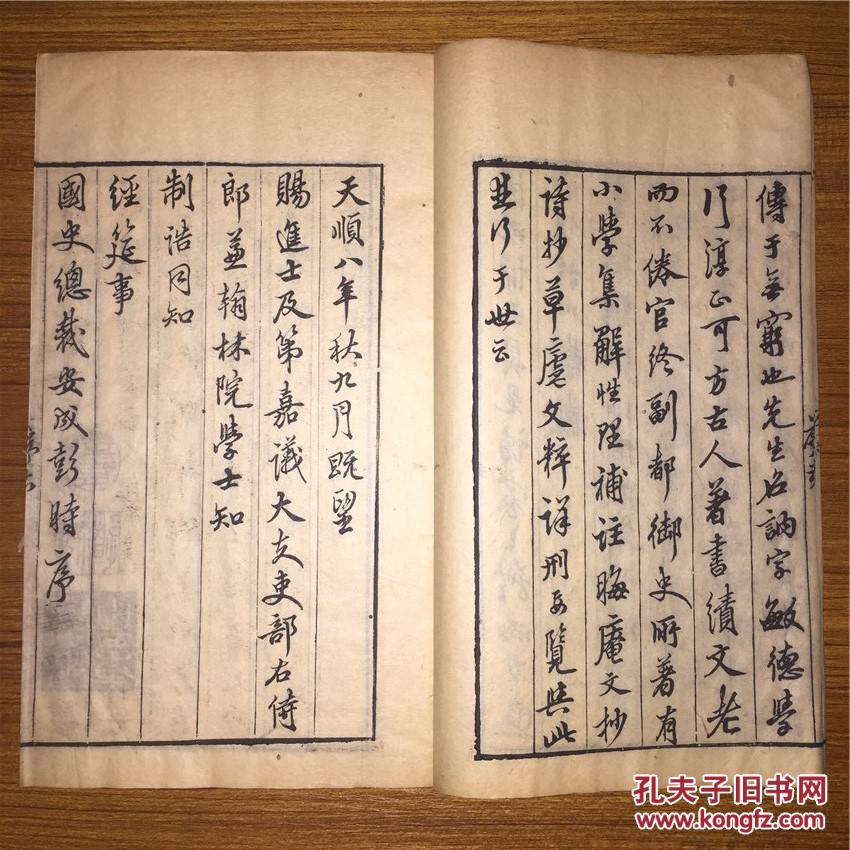 傳于無窮也先生名訥字敏德學
行淳正可方古人著書績文老
而不倦官終副都御史所著有
小學集解性理補註晦庵文抄
詩抄草廬文粹詳刑要覽與此
並行于世云
天順八年秋九月既望
賜進士及第嘉議大夫吏部右侍
郎兼翰林院學士知
制誥同知
經筵事
國史總裁安成彭時序
孔夫子旧书网
www.kongfz.com